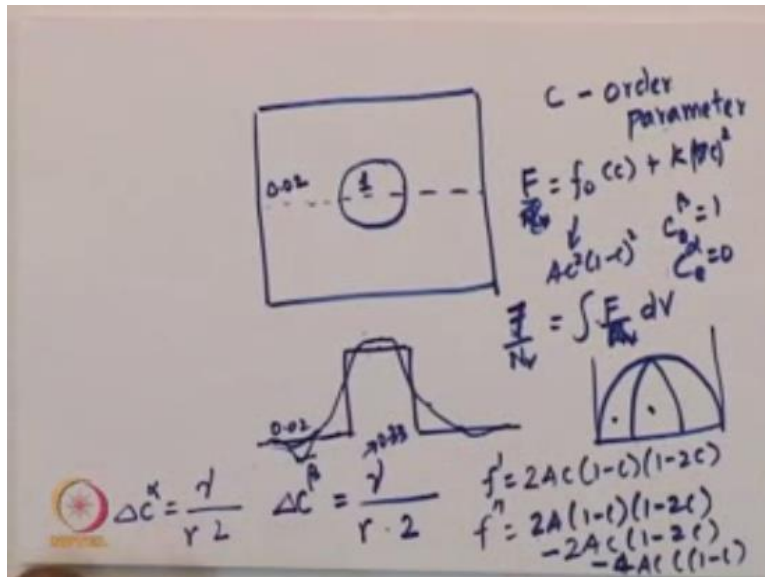 C - order
parameter
F = f₀(c) + K(∇c)²
AC²(1-c)²
Cₑ^β = 1
Cₑ^α = 0
0.02
1
F/Nᵥ = ∫ F dV
0.02
ΔC^α = γ / r 2
ΔC^β = γ / r · 2
f' = 2AC(1-c)(1-2c)
f" = 2A(1-c)(1-2c)
-2AC(1-2c)
-4AC(1-c)